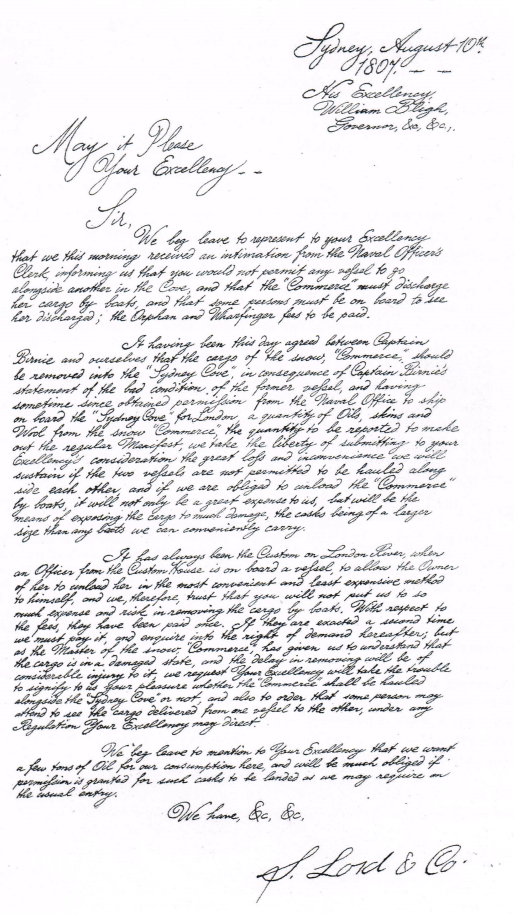 Sydney, August 10th
1807. – –
His Excellency,
William Bligh,
Governor, &c, &c,.
May it Please
Your Excellency – –
Sir,
We beg leave to represent to your Excellency
that we this morning received an intimation from the Naval Officer's
Clerk, informing us that you would not permit any vessel to go
alongside another in the Cove, and that the "Commerce" must discharge
her cargo by boats, and that some persons must be on board to see
her discharged; the Orphan and Wharfinger fees to be paid.
It having been this day agreed between Captain
Birnie and ourselves that the cargo of the snow, "Commerce," should
be removed into the "Sydney Cove", in consequence of Captain Birnie's
statement of the bad condition of the former vessel, and having
sometime since obtained permission from the Naval Office to ship
on board the "Sydney Cove" for London, a quantity of Oil, skins and
Wool from the snow "Commerce", the quantity to be reported to make
out the regular Manifest, we take the liberty of submitting to your
Excellency's consideration the great loss and inconvenience we will
sustain if the two vessels are not permitted to be hauled along
side each other, and if we are obliged to unload the "Commerce"
by boats, it will not only be a great expense to us, but will be the
means of exposing the cargo to much damage, the casks being of a larger
size than any boats we can conveniently carry.
It has always been the Custom on London River, when
an Officer from the Custom House is on board a vessel, to allow the Owner
of her to unload her in the most convenient and least expensive method
to himself, and we, therefore, trust that you will not put us to so
much expense and risk in removing the cargo by boats. With respect to
the fees, they have been paid once. If they are exacted a second time
we must pay it, and enquire into the right of demand hereafter; but
as the Master of the snow, "Commerce", has given us to understand that
the cargo is in a damaged state, and the delay in removing will be of
considerable injury to it, we request Your Excellency will take the trouble
to signify to us your pleasure whether the "Commerce" shall be hauled
alongside the "Sydney Cove" or not, and also to order that some person may
attend to see the cargo delivered from one vessel to the other, under any
Regulation Your Excellency may direct.
We beg leave to mention to Your Excellency that we want
a few tons of Oil for our consumption here, and will be much obliged if
permission is granted for such casks to be landed as we may require on
the usual entry.
We have, &c, &c,
S. Lord & Co.